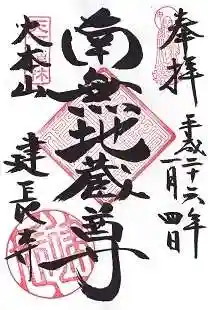 奉拝
平成二十六年
一月四日
南無地蔵尊
建長寺